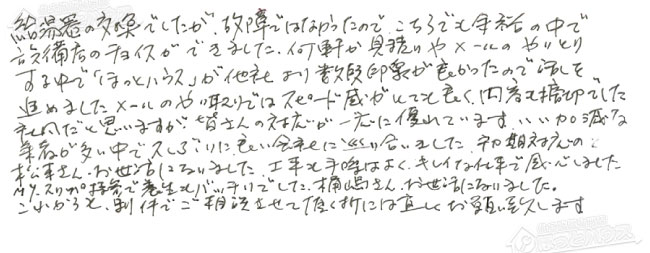 給湯器の交換でしたが、故障ではなかったので、こちらでも余裕の中で
設備店のチョイスができました、何軒か見積りやメールのやりとり
する中で「ほっとハウス」が他社より数段印象が良かったので話しを
進めましたメールのやり取りではスピード感がとても良く、内容も適切でした
社風だと思いますが、皆さんの対応が一応に優れています、いいかげんな
業者が多い中で久しぶりに良い会社に巡り合いました、初期対応の
松本さん、お世話になりました、工事も手際よく、キレイな仕事で感心しました
スリッパ持参で養生もバッチリでした、桶嶋さん、お世話になりました。
これからも、別件でご相談させて頂く折には宜しくお願い致します